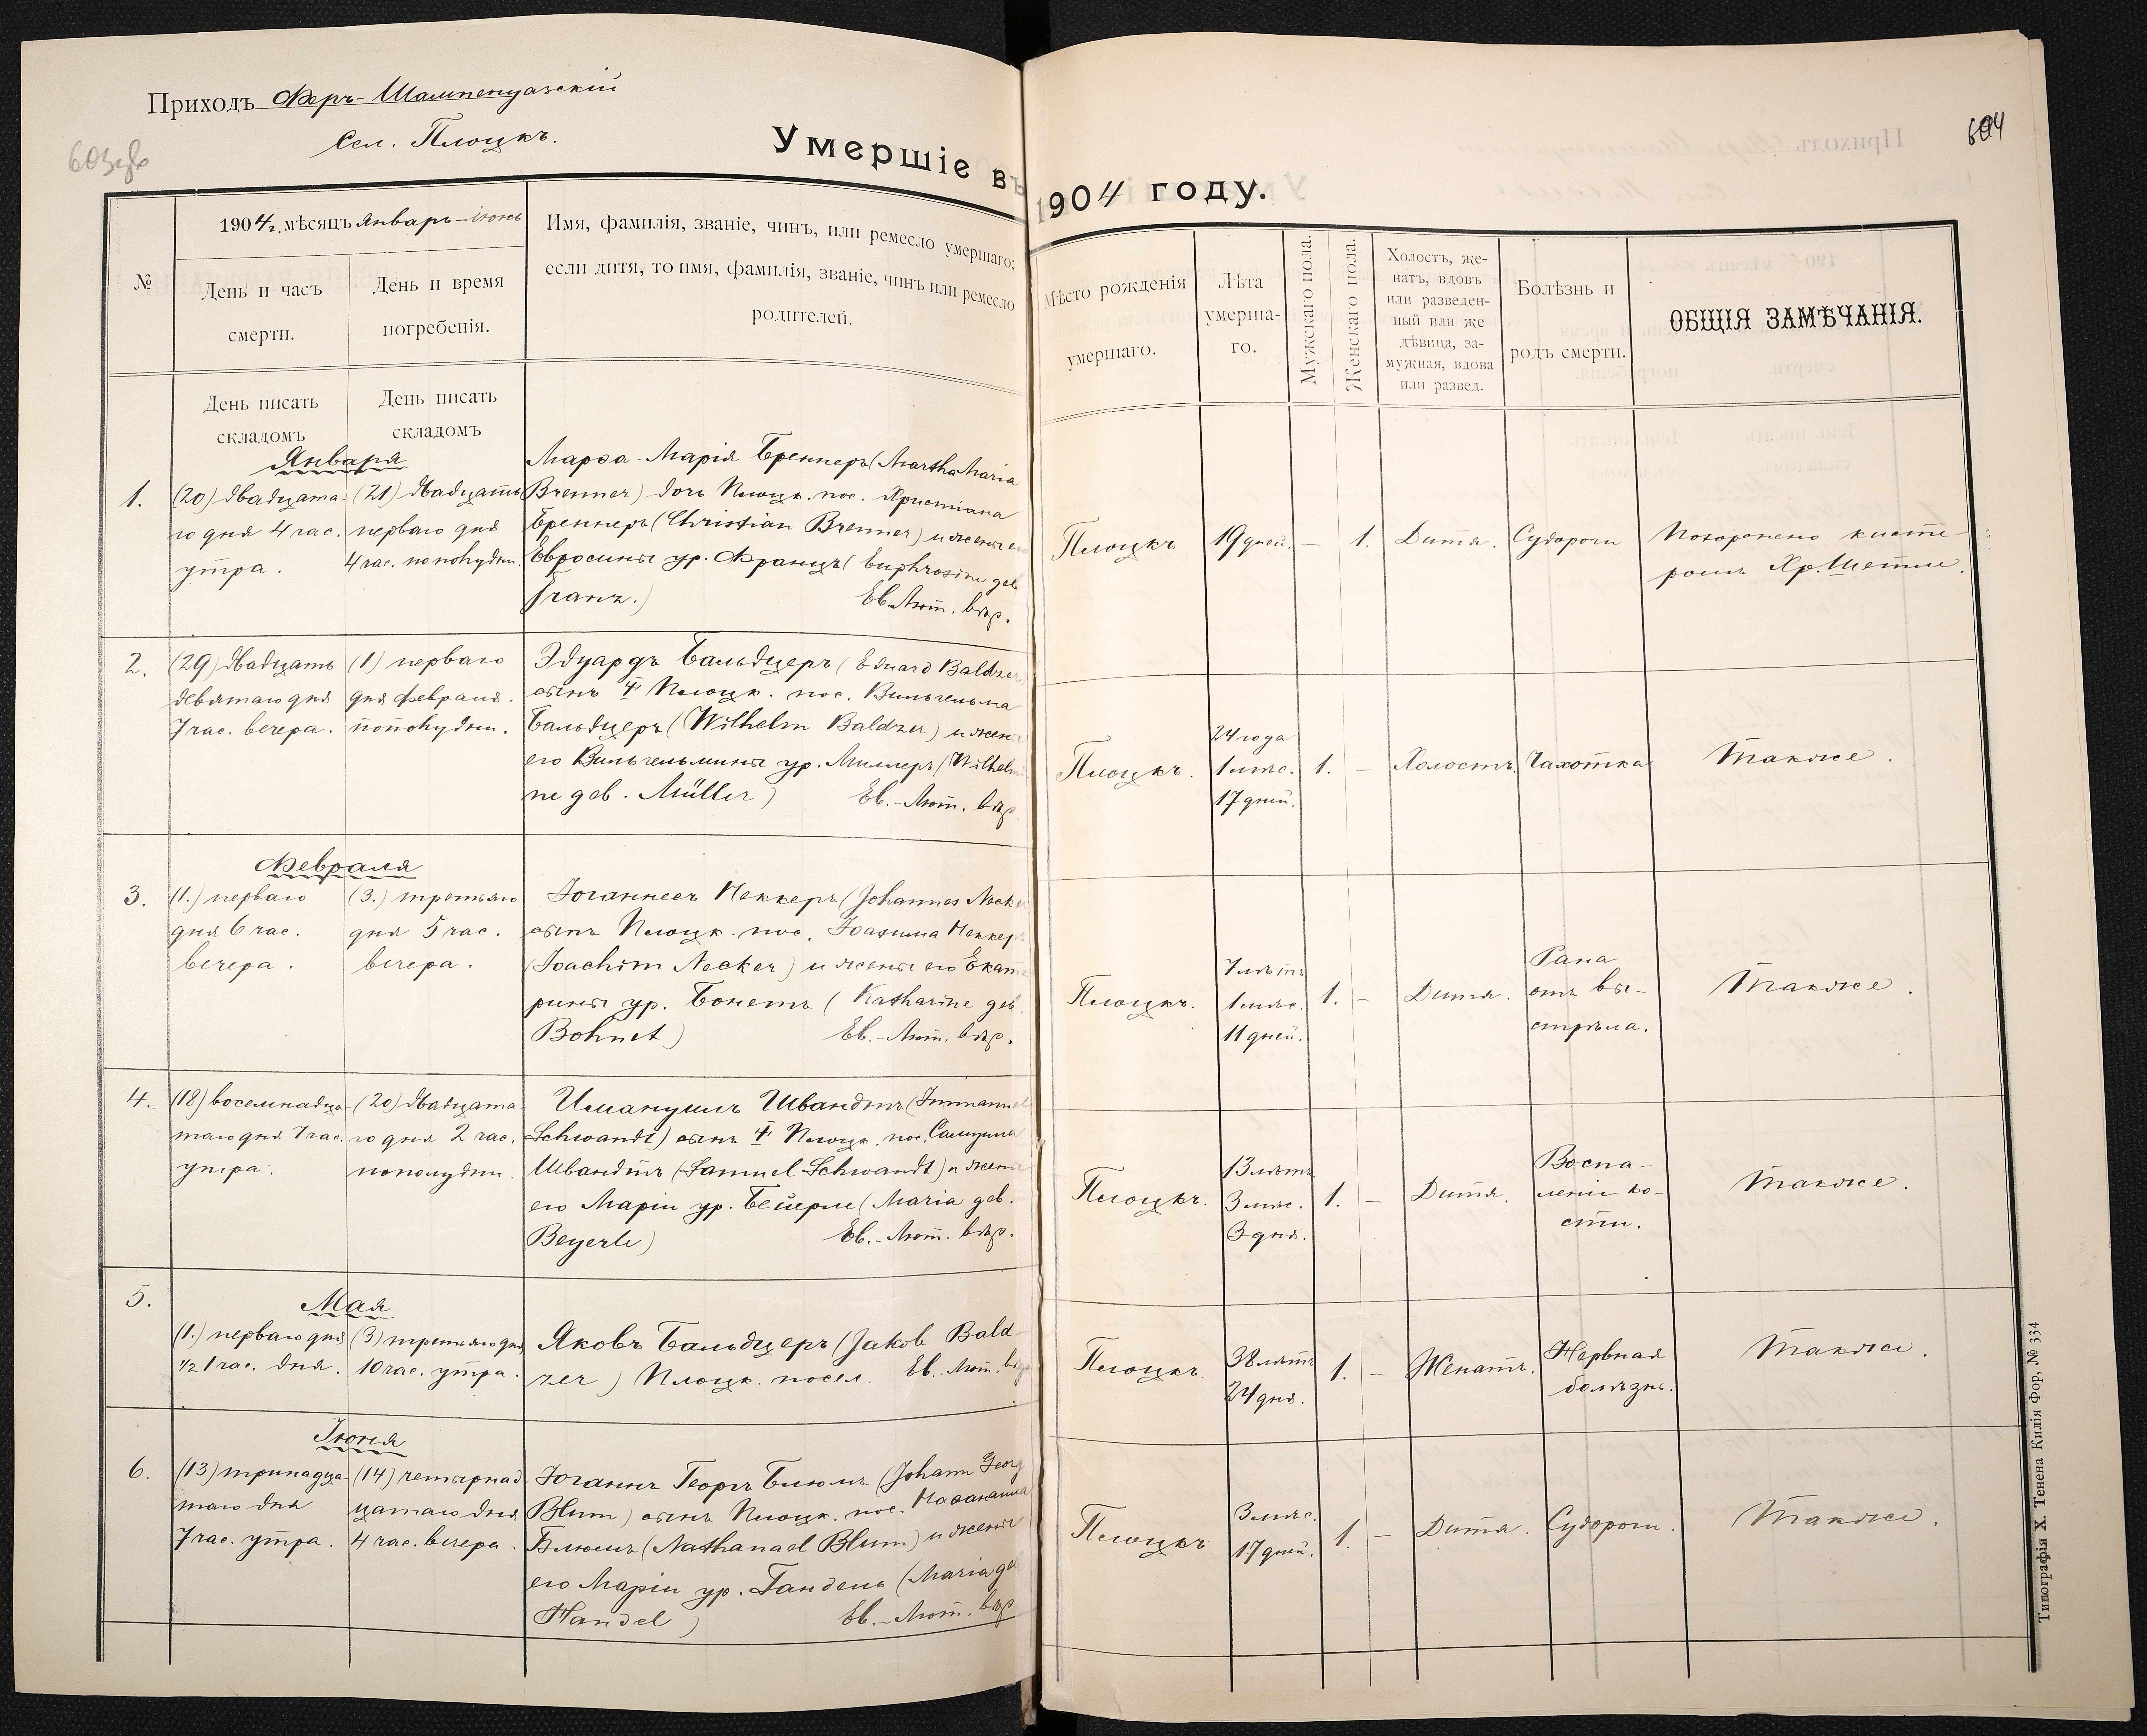 Приходъ Феръ-Шампенуазскій
Сел. Плоцкъ.
Умершіе въ
1904 году.
604
№
1904 г. мѣсяцъ Январь – Іюнь
День и часъ
смерти.
День и время
погребенія.
Имя, фамилія, званіе, чинъ, или ремесло умершаго;
если дитя, то имя, фамилія, званіе, чинъ или ремесло
родителей.
Мѣсто рожденія
умершаго.
Лѣта
умерша-
го.
Мужскаго пола.
Женскаго пола.
Холостъ, же-
натъ, вдовъ
или разведен-
ный или же
дѣвица, за-
мужная, вдова
или развед.
Болѣзнь и
родъ смерти.
ОБЩІЯ ЗАМѢЧАНІЯ.
День писать
складомъ
День писать
складомъ
Января
1.
(20) двадцата-
го дня 4 час.
утра.
(21) двадцать
перваго дня
4 час. пополудни.
Марѳа-Марія Бреннеръ (Martha Maria
Brenner) дочь Плоцк. пос. Христіана
Бреннеръ (Christian Brenner) и жены его
Евросины ур. Францъ (Euphrosine geb.
Franz.) Ев.-Лют. вѣр.
Плоцкъ
19 дней.
—
1.
Дитя.
Судороги
Похоронено кисте-
ромъ Хр. Шетле.
2.
(29) двадцать
девятаго дня
7 час. вечера.
(1) перваго
дня февраля.
пополудни.
Эдуардъ Бальдцеръ (Eduard Baldzer
сынъ † Плоцк. пос. Вильгельма
Бальдцеръ (Wilhelm Baldzer) и жены
его Вильгельмины ур. Миллеръ (Wilhelmi
ne geb. Müller) Ев.-Лют. вѣр.
Плоцкъ.
24 года
1 мѣс.
17 дней.
1.
—
Холостъ.
Чахотка
Также.
Февраля
3.
(1.) перваго
дня 6 час.
вечера.
(3.) третьяго
дня 5 час.
вечера.
Іоганнесъ Неккеръ (Johannes Necker
сынъ Плоцк. пос. Іоахима Неккеръ
(Joachim Necker) и жены его Екате
рины ур. Бонетъ (Katharine geb.
Bohnet) Ев.-Лют. вѣр.
Плоцкъ.
7 лѣтъ
1 мѣс.
11 дней.
1.
—
Дитя.
Рана
отъ вы-
стрѣла.
Также.
4.
(18) восемнадца-
таго дня 7 час.
утра.
(20) двадцата-
го дня 2 час.
пополудни.
Имануилъ Швандтъ (Immanuel
Schwandt) сынъ † Плоцк. пос. Самуила
Швандтъ (Samuel Schwandt) и жены
его Маріи ур. Бейерле (Maria geb.
Beyerle) Ев.-Лют. вѣр.
Плоцкъ.
13 лѣтъ
3 мѣс.
3 дня.
1.
—
Дитя.
Воспа-
леніе ко-
сти.
Также.
5.
Мая
(1.) перваго дня
½ 1 час. дня.
(3) третьяго дня
10 час. утра.
Яковъ Бальдцеръ (Jakob Bald-
zer) Плоцк. посел. Ев.-Лют. вѣр
Плоцкъ.
38 лѣтъ
24 дня.
1.
—
Женатъ.
Нервная
болѣзнь.
Также.
Іюня
6.
(13) тринадца-
таго дня
7 час. утра.
(14) четырнад-
цатаго дня
4 час. вечера.
Іоганнъ Георгъ Блюмъ (Johann Georg
Blum) сынъ Плоцк. пос. Наѳанаила
Блюмъ (Nathanael Blum) и жены
его Маріи ур. Гандель (Maria ge
Handel) Ев.-Лют. вѣр
Плоцкъ
3 мѣс.
17 дней.
1.
—
Дитя.
Судороги.
Также.
Типографія Х. Теннена Килія Фор, № 334